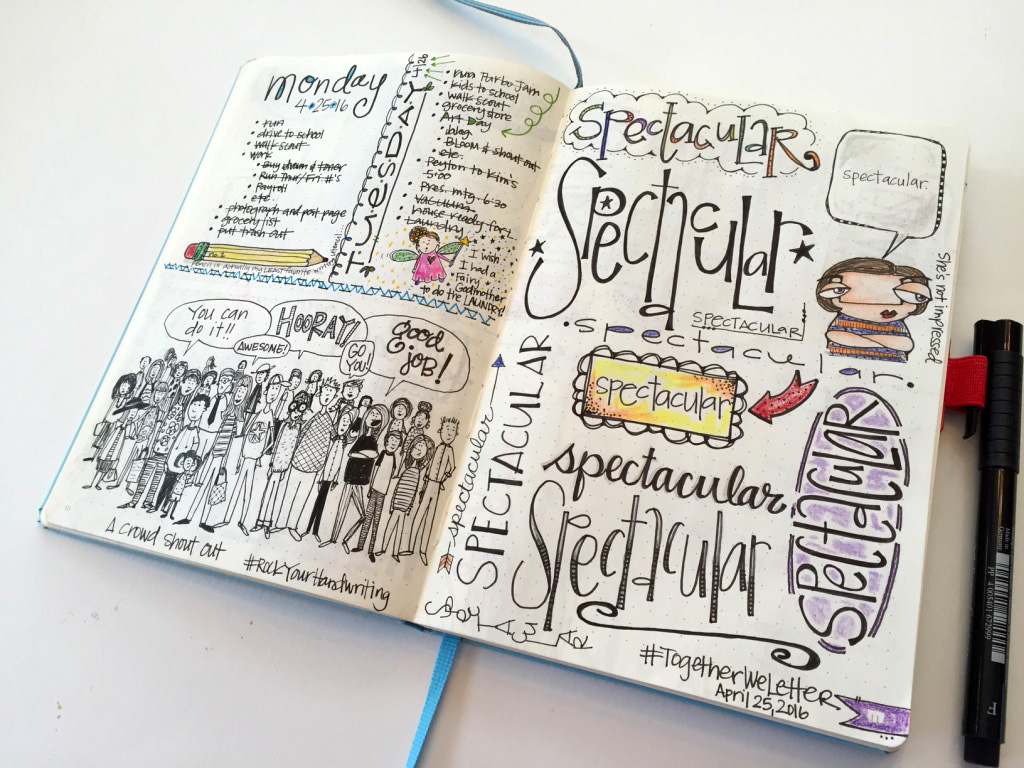 monday
4•25•16
• run
• drive to school
• walk scout
• work
• Buy drum & toner
• Run Thur/Fri #'s
• Payroll
• etc.
• photograph and post page
• grocery list
• put trash out
no. 2
Pencil is actually my least favorite
TUESDAY
4/26
• run Turbo Jam
• kids to school
• walk scout
• grocery store
• Art Day
• blog
• BLOOM & shout out
• etc.
• Peyton to Kim's
5:00
• Pres. mtg. 6:30
• vacuum
• house ready for
• Laundry
I wish
I had a
Fairy
Godmother
to do the LAUNDRY!
You can
do it!!
HOORAY!
AWESOME!
GO
YOU
Good
JOB!
A crowd shout out
#RockYourHandwriting
SPECTACULAR
Spectacular
SPECTACULAR
spectacular.
spectacular.
She's not impressed
spectacular
spectacular
SPECTACULAR
spectacular
spectacular
Spectacular
SPECTACULAR
#TogetherWeLetter
April 25, 2016
Made in
Germany